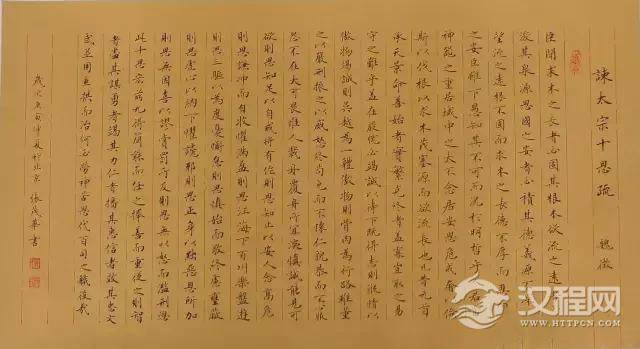 諫太宗十思疏 魏徵
臣聞求木之長者必固其根本欲流之遠者必
浚其泉源思國之安者必積其德義源不深而
望流之遠根不固而求木之長德不厚而思國
之安臣雖下愚知其不可而況於明哲乎人君當
神器之重居域中之大不念居安思危戒奢以儉
斯以伐根以求木茂塞源而欲流長也凡昔元首
承天景命善始者實繁克終者蓋寡豈取之易
守之難乎蓋在殷憂必竭誠以待下既得志則縱情以
傲物竭誠則吳越為一體傲物則骨肉為行路雖董
之以嚴刑振之以威怒終苟免而不懷仁貌恭而不心服
怨不在大可畏惟人載舟覆舟所宜深慎誠能見可
欲則思知足以自戒將有作則思知止以安人念高危
則思謙沖而自牧懼滿盈則思江海下百川樂盤遊
則思三驅以為度憂懈怠則思慎始而敬終慮壅蔽
則思虛心以納下懼讒邪則思正身以黜惡恩所加
則思無因喜以謬賞罰所及則思無以怒而濫刑總
此十思宏茲九得簡能而任之擇善而從之則智
者盡其謀勇者竭其力仁者播其惠信者效其忠文
武並用垂拱而治何必勞神苦思代百司之職役哉
歲次庚寅年夏於北京 張茂華書
汉程网
WWW.HTTPCN.COM